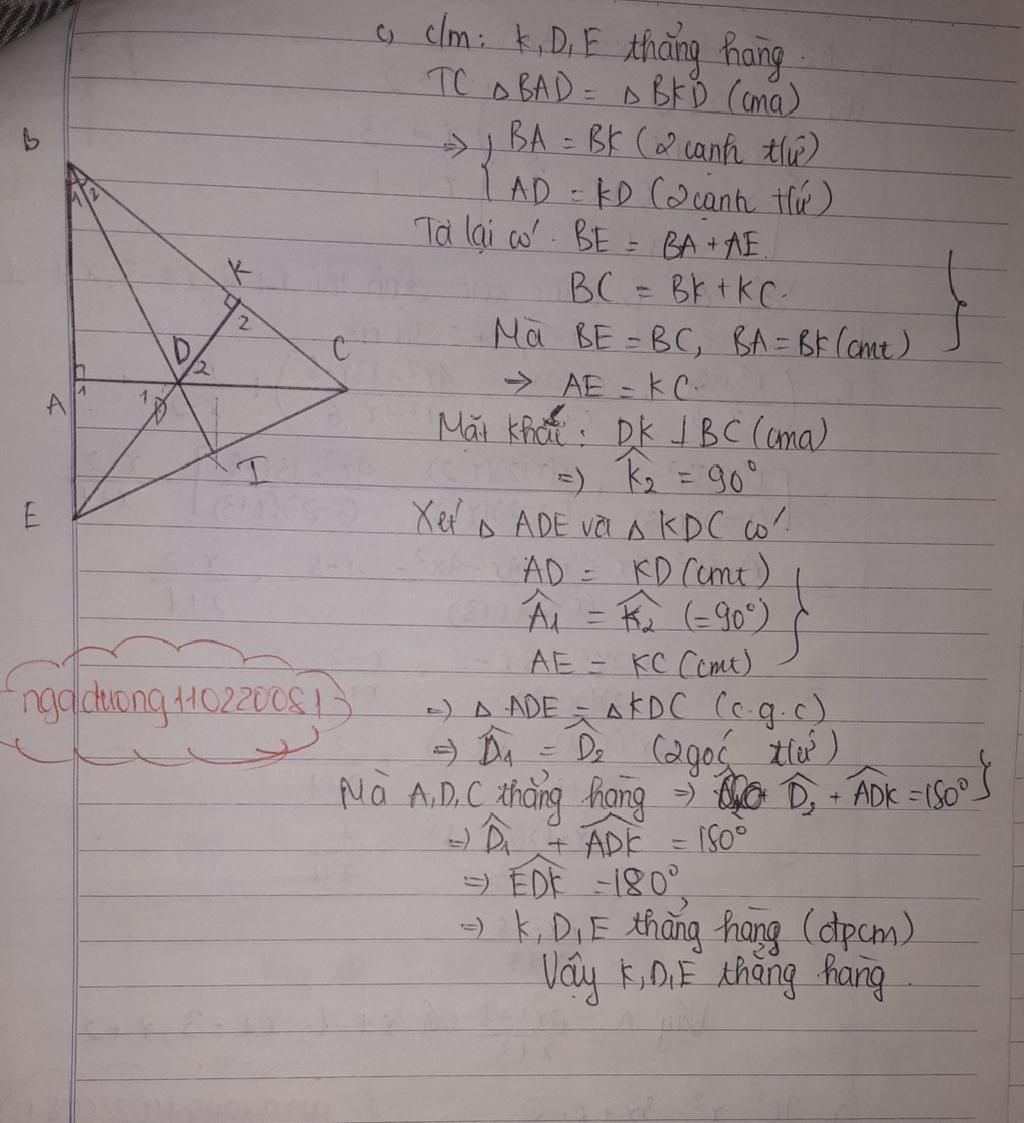 c, c/m: K, D, E thẳng hàng.
TC △BAD = △BKD (cma)
⇒ { BA = BK (2 cạnh t/ứ)
AD = KD (2 cạnh t/ứ)
Ta lại có: BE = BA + AE.
BC = BK + KC.
Mà BE = BC, BA = BK (cmt) }
→ AE = KC.
Mặt khác: DK ⊥ BC (cma)
=) K̂₂ = 90°
Xét △ ADE và △ KDC có:
AD = KD (cmt)
Â₁ = K̂₂ (=90°) }
AE = KC (cmt)
=) △ ADE = △KDC (c.g.c)
=) D̂₁ = D̂₂ (2 góc t/ứ)
Mà A, D, C thẳng hàng => D̂₂ + ADK̂ = 180° }
=) D̂₁ + ADK̂ = 180°
=) EDK̂ = 180°
=) K, D, E thẳng hàng (đpcm)
Vậy K, D, E thẳng hàng.
B
1 2
K
2
D
2
C
A
1
1
D
I
E
ngaduong11022008)